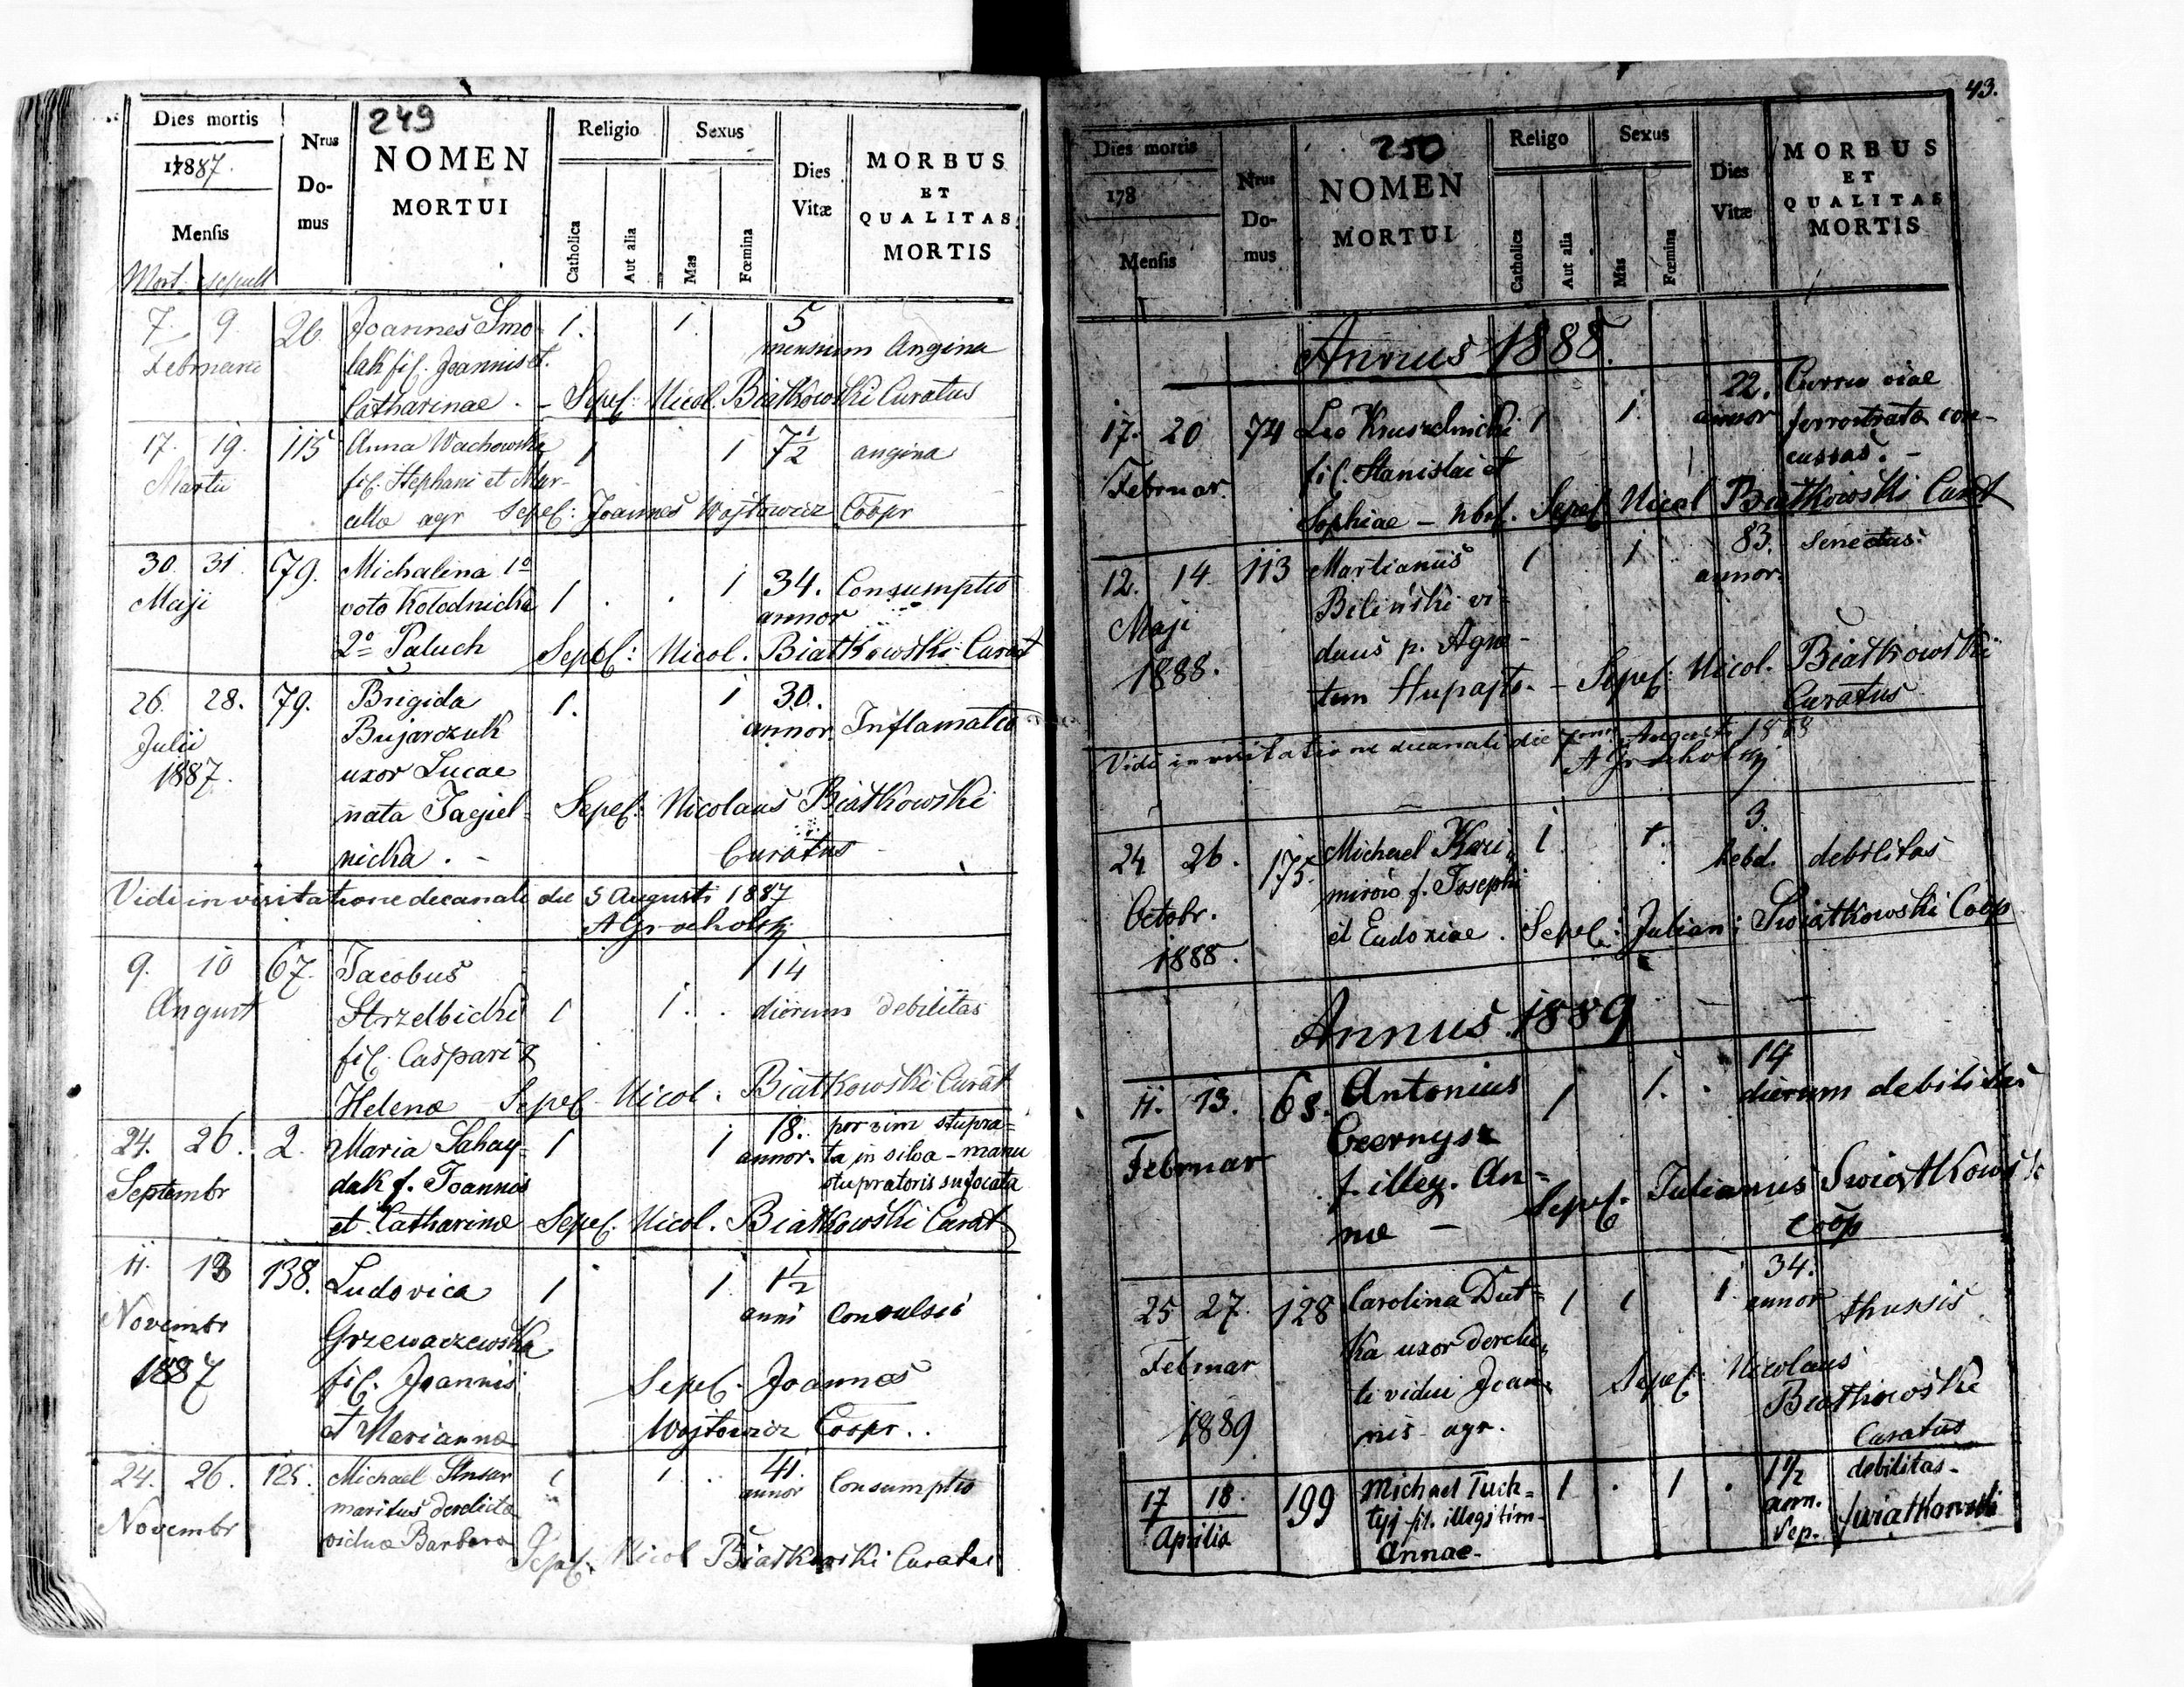 249
Dies mortis
Nrus Domus
NOMEN MORTUI
Religio
Sexus
Dies Vitæ
MORBUS ET QUALITAS MORTIS
1887.
Mensis
Catholica
Aut alia
Mas
Fœmina
Mort. sepult
7. 9. 26. Joannes Smo- 1. 1. 5
Februarii lak fil. Joannis et mensium Angina
Catharinae. - Sepel: Nicol. Białkowski Curatus
17. 19. 115 Anna Wachowska 1 1 7 1/2 angina
Martii fil. Stephani et Mar-
cellae agr Sepel: Joannes Wojtowicz Coopr
30. 31. 79. Michalina 1o
Maji voto Kołodnicka 1 . . 1 34. Consumptio
annor
2o Paluch Sepel: Nicol. Białkowski Curat
26. 28. 79. Brigida 1. 1 30.
Julii Bujarczuk annor. Inflamatio
1887. uxor Lucae
nata Jagiel- Sepel: Nicolaus Białkowski
nicka. - Curatus
Vidi in visitatione decanali die 5 Augusti 1887
9. 10 67. Jacobus 14
August Strzelbicki 1 1. . dierum debilitas
fil. Caspari &
Helenae Sepel Nicol. Białkowski Curat
24. 26. 2. Maria Sahay- 1 1 18. per vim stupra-
annor. ta in silva - manu
Septembr dak f. Joannis stupratoris sufocata
et Catharinae Sepel. Nicol. Białkowski Curat
11. 13 138. Ludovica 1 1 1 1/2
Novembr anni Convulsio
Grzewaczewska
1887 fil. Joannis Sepel. Joannes
et Mariannae Wojtowicz Coopr..
24. 26. 125. Michael 1 1. 41. Consumptio
annor
maritus derelicta
Novembr vidua Barbara
Sepel. Nicol Białkowski Curatus
43.
250
Dies mortis
Nrus Domus
NOMEN MORTUI
Religo
Sexus
Dies Vitæ
MORBUS ET QUALITAS MORTIS
178
Mensis
Catholica
Aut alia
Mas
Fœmina
Annus 1888.
17. 20 74 Leo Kruszelnicki 1 1. 22. Curru viae
annor ferrostratae con-
Februar. fil. Stanislai et cussus. -
Sophiae - nbil. Sepel Nicol Białkowski Curat
12. 14. 113 Martianus 1 1 83. Senectus.
annor.
Maji Biliński vi-
1888. duus p. Agne-
tem - Sepel: Nicol. Białkowski
Curatus
Vidi in visitatione decanali die Augusti 1888
24. 26. 175. Michael 1 1. 3.
hebd. debilitas
Octobr. f. Josephi
1888. et Eudoxiae. Sepel: Julian: Swiatkowski Coop
Annus 1889
11. 13. 68. Antonius 1 1. . 14
dierum debilitas
Februar
f. illeg. An-
nae - Sepel. Julianus Swiatkowski
coop
25 27. 128 Carolina Dut- 1 1 1 34.
annor thussis
Februar ka uxor derelic-
ti vidui Joan- Sepel: Nicolaus
1889 nis agr. Białkowski
Curatus
17 18. 199 Michael Tuch- 1 . 1 . 1 1/2 debilitas -
Aprilis tyj fil. illegitim- ann.
Annae - Sep. Swiatkowski